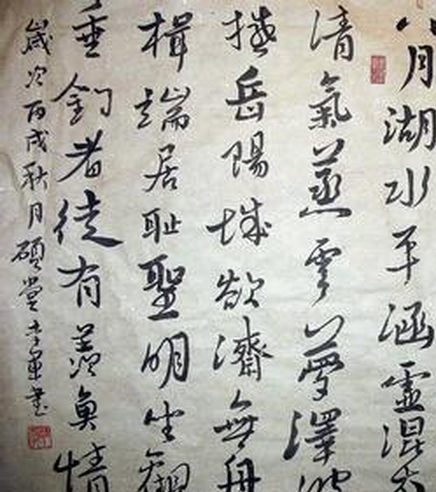 八月湖水平涵虛混太
清氣蒸雲夢澤波
撼岳陽城欲濟無舟
楫端居耻聖明坐觀
垂釣者徒有羨魚情
歲次丙戌秋月碩堂李書